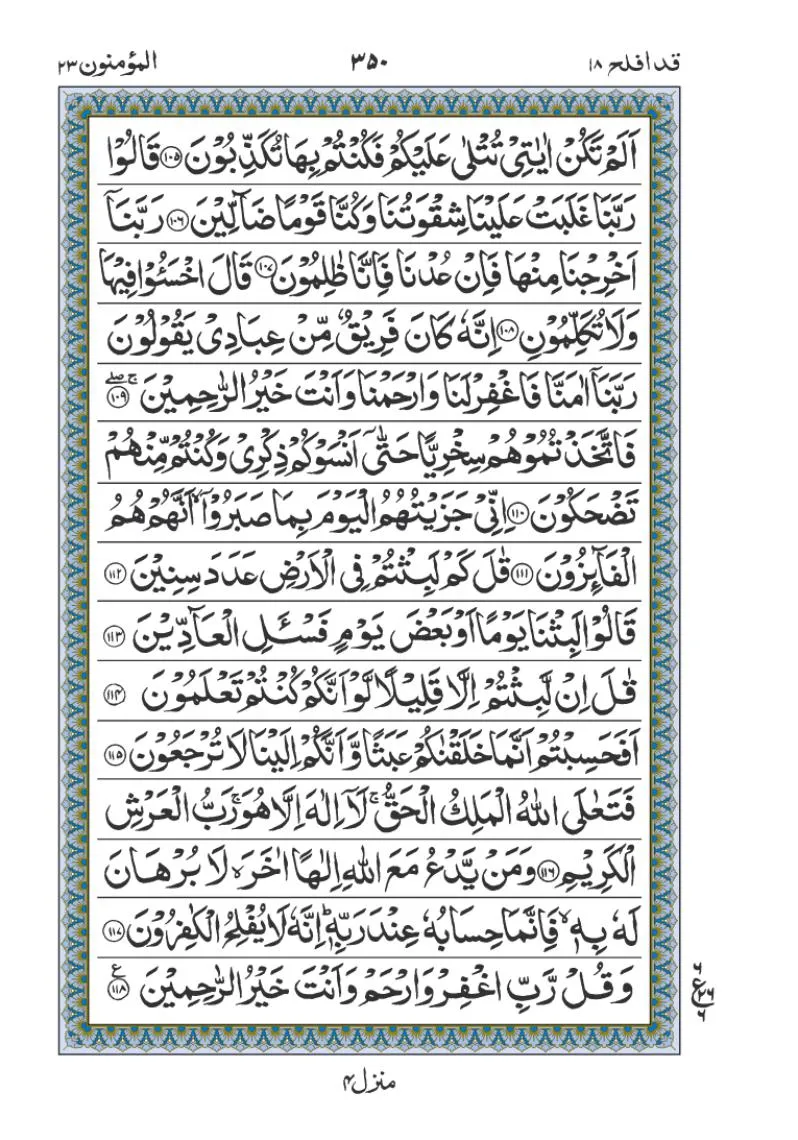 قد افلح ۱۸ ۳۵۰ المؤمنون ۲۳
اَلَمۡ تَكُنۡ اٰيٰتِىۡ تُتۡلٰى عَلَيۡكُمۡ فَكُنۡتُمۡ بِهَا تُكَذِّبُوۡنَ ﴿۱۰۵﴾ قَالُوۡا
رَبَّنَا غَلَبَتۡ عَلَيۡنَا شِقۡوَتُنَا وَكُنَّا قَوۡمًا ضَآلِّيۡنَ ﴿۱۰۶﴾ رَبَّنَاۤ
اَخۡرِجۡنَا مِنۡهَا فَاِنۡ عُدۡنَا فَاِنَّا ظٰلِمُوۡنَ ﴿۱۰۷﴾ قَالَ اخۡسَـُٔـوۡا فِيۡهَا
وَلَا تُكَلِّمُوۡنِ ﴿۱۰۸﴾ اِنَّهٗ كَانَ فَرِيۡقٌ مِّنۡ عِبَادِىۡ يَقُوۡلُوۡنَ
رَبَّنَاۤ اٰمَنَّا فَاغۡفِرۡ لَنَا وَارۡحَمۡنَا وَاَنۡتَ خَيۡرُ الرّٰحِمِيۡنَ ۚ ۖ ﴿۱۰۹﴾
فَاتَّخَذۡتُمُوۡهُمۡ سِخۡرِيًّا حَتّٰٓى اَنۡسَوۡكُمۡ ذِكۡرِىۡ وَكُنۡتُمۡ مِّنۡهُمۡ
تَضۡحَكُوۡنَ ﴿۱۱۰﴾ اِنِّىۡ جَزَيۡتُهُمُ الۡيَوۡمَ بِمَا صَبَرُوۡۤا ۙ اَنَّهُمۡ هُمُ
الۡفَآٮِٕزُوۡنَ ﴿۱۱۱﴾ قٰلَ كَمۡ لَبِثۡتُمۡ فِى الۡاَرۡضِ عَدَدَ سِنِيۡنَ ﴿۱۱۲﴾
قَالُوۡا لَبِثۡنَا يَوۡمًا اَوۡ بَعۡضَ يَوۡمٍ فَسۡـَٔـلِ الۡعَآدِّيۡنَ ﴿۱۱۳﴾
قٰلَ اِنۡ لَّبِثۡتُمۡ اِلَّا قَلِيۡلًا لَّوۡ اَنَّكُمۡ كُنۡتُمۡ تَعۡلَمُوۡنَ ﴿۱۱۴﴾
اَفَحَسِبۡتُمۡ اَنَّمَا خَلَقۡنٰكُمۡ عَبَثًا وَّاَنَّكُمۡ اِلَيۡنَا لَا تُرۡجَعُوۡنَ ﴿۱۱۵﴾
فَتَعٰلَى اللّٰهُ الۡمَلِكُ الۡحَـقُّ ۚ لَاۤ اِلٰهَ اِلَّا هُوَ ۚ رَبُّ الۡعَرۡشِ
الۡكَرِيۡمِ ﴿۱۱۶﴾ وَمَنۡ يَّدۡعُ مَعَ اللّٰهِ اِلٰهًا اٰخَرَ ۙ لَا بُرۡهَانَ
لَهٗ بِهٖ ۙ فَاِنَّمَا حِسَابُهٗ عِنۡدَ رَبِّهٖ ؕ اِنَّهٗ لَا يُفۡلِحُ الۡـكٰفِرُوۡنَ ﴿۱۱۷﴾
وَقُلۡ رَّبِّ اغۡفِرۡ وَارۡحَمۡ وَاَنۡتَ خَيۡرُ الرّٰحِمِيۡنَ ع ﴿۱۱۸﴾
۶
ع ۲۶
۶
منزل ۴